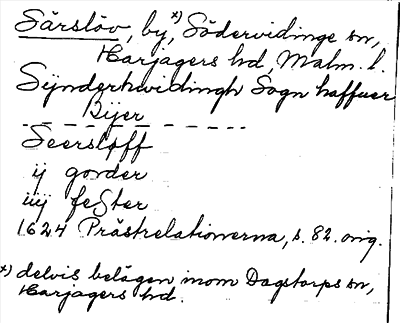 Särslöv, by,*) Södervidinge sn,
Harjagers hd, Malm. l.
Synderhwidingh Sogn haffuer
Byer
- - - - - - - - - - - - - - -
Seersløff
ij gorder
iiij fester
1624 Prästrelationerna, s. 82. orig.
*) delvis belägen inom Dagstorps sn,
Harjagers hd.